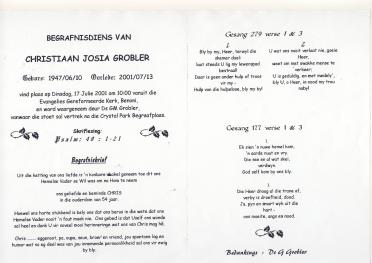 BEGRAFNISDIENS VAN
CHRISTIAAN JOSIA GROBLER
Gebore: 1947/06/10 Oorlede: 2001/07/13
vind plaas op Dinsdag, 17 Julie 2001 om 10:00 vanuit die
Evangelies Gereformeerde Kerk, Benoni,
en word waargeneem deur Ds GM. Grobler,
vanwaar die stoet sal vertrek na die Crystal Park Begraafplaas.
Skriflesing:
Psalm: 40 : 1-21
Begrafnisbrief
Uit die ketting van ons liefde is 'n kosbare skakel geneem toe dit ons
Hemelse Vader se Wil was om na Hom te neem
ons geliefde en beminde CHRIS
in die ouderdom van 54 jaar.
Hoewel ons harte stukkend is bely ons dat ons berus in die wete dat ons
Hemelse Vader nooit 'n fout maak nie. Ons gebed is dat Uself ons wonde
sal heel en dank U vir soveel mooi herinneringe wat ons van Chris mag hê.
Chris ....... eggenoot, pa, oupa, seun, broer en vriend, jou spontane lag en
humor wat so eg deel was van jou innemende persoonlikheid sal ons vir ewig
by bly.
Gesang 279 verse 1 & 3
1
Bly by my, Heer, terwyl die
skemer daal;
laat steeds U lig my lewenspad
bestraal!
Daar is geen ander hulp of troos
vir my -
Hulp van die hulpelose, bly my by!
3
U wat ons nooit verlaat nie, goeie
Heer,
weet van wat swakke mense te
verkeer;
U is geduldig, en met medely',
bly U, o Heer, in nood my trou
naby!
Gesang 177 verse 1 & 3
1
Ek sien 'n nuwe hemel kom,
'n aarde nuut en vry.
Die see en al wat skei,
verdwyn.
God self kom by ons bly.
3
Die Heer droog al die trane af,
verby is droefheid, dood.
Ja, pyn en smart wyk uit die
hart -
ons moeite, angs en nood.
Bedankings : Ds G Grobler